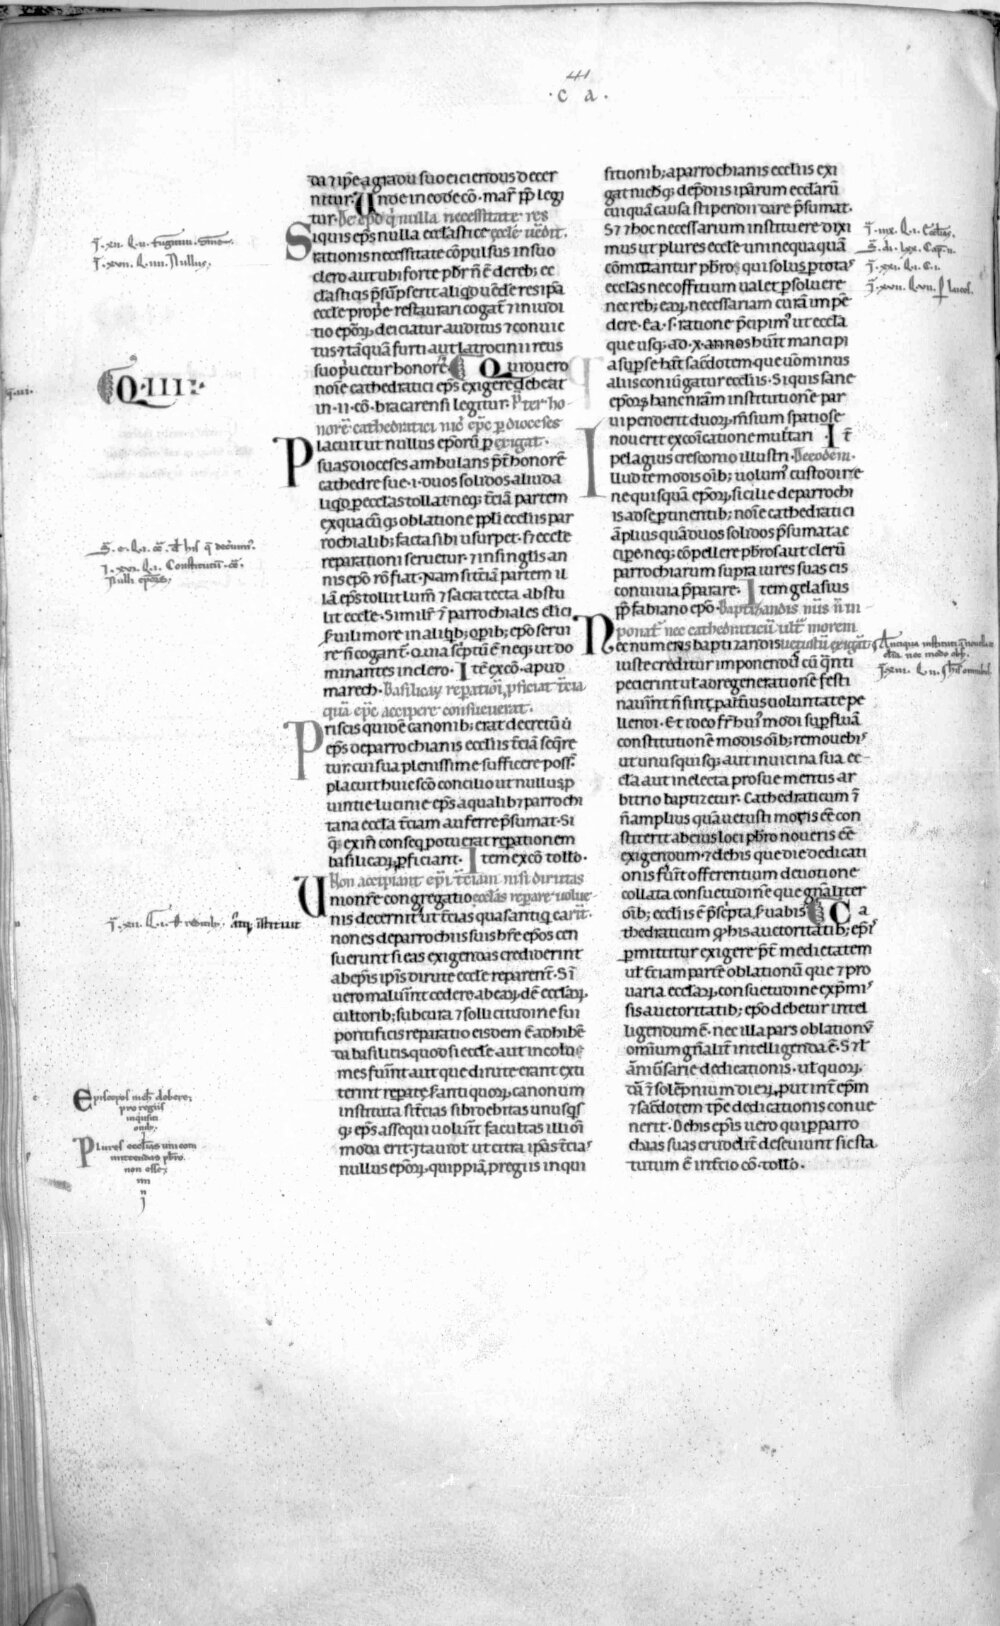 ·c a·
da ⁊ ip̄e a gradu suo eiciendus decer
nitur. Unde in eodē cō. mar̄ p̄p legi
tur. De ep̄o q̇ nulla necessitate res
Siquis ep̄s nulla eccl̄astice eccl̄e uēdit.
rationis necessitate cōpulsus in suo
clero aut ubi forte pb̄r n̄ ē dereb; ec
cl̄asticis p̄sūpserit aliq̇d uēdere
eccl̄e prop̄e restaurari cogat̄ ⁊ in iudi
tio ep̄oꝝ deiciatur auditus ⁊ conuic
tus ⁊ tāquā furti aut latrocinii reus
suo ṗuetur honore. Quod uero
·Q·III·
noīe cathedratici ep̄s exigere debeat
in ·ii· cō. bracarensi legitur. P̄ter ho-
norē cathedratici nic̄ ep̄c p̱ dioceses
Placuit ut nullus ep̄orū p̱ exigat.
suas dioceses ambulans p̄t̄ honorē
cathedre sue ·i· duos solidos aliud a
liq̇d p̱ eccl̄as tollat. neq; t̄ciā partem
ex quacūq; oblatione pp̄li eccl̄iis par
rochialib; facta sibi usurpet. s; eccl̄e
reparationi seruetur ⁊ in singl̄is an
nis ep̄o rō fiat. Nam si t̄ciā partem il
lā ep̄s tollit lum̄ ⁊ sacra tecta abstu
lit eccl̄e. Similr̄ ⁊ parrochiales cl̄ici
seruili more in aliq̇b; op̱ib; ep̄o serui
re n̄ cogant̄. Quia sc̄ptū ē neq; ut do
minantes in clero. Itē ex cō. apud
marech. Basilicaꝝ rep̱atiōi p̱ficiat t̄cia
quā ep̄c accipere consueuerat.
Priscis quidē canonib; erat decretū ū
ep̄s de parrochianis eccl̄iis t̄ciā seq̄re
tur. cui sua plenissime sufficere poss;
placuit huic sc̄o concilio ut nullus p̱
uintie lucinie ep̄s a qualib; parrochi
tana eccl̄a t̄ciam auferre p̄sumat. Si
q; exin̄ conseq̇ potuerat rep̱ationem
basilicaꝝ p̱ficiant. Item ex cō tollō.
Non accipiant ep̄i t̄ciam nisi dirutas
Unionr̄e congregatio eccl̄as rep̱are uolue-
nis decernit ut t̄cias quas antiq̇ ca rīt.
nones de parrochiis suis hr̄e ep̄os cen
suerunt si eas exigendas crediderint
ab ep̄is ip̄is dirute eccl̄e reparent̄. Si
uero maluīnt cedere ab eaꝝdē eccl̄aꝝ
cultorib; sub cura ⁊ sollicitudine sui
pontificis reparatio eisdem ē adhibē
da basilicis. quod si eccl̄e aut incolu
mes fuīnt aut que dirute erant exti
terint repate, s; antiquoꝝ canonum
instituta t̄cias sibi debitas unusq̇s
q; ep̄s assequi uolun̄t facultas illi oī
moda erit. Ita uidt̄ ut citra ip̄as t̄cias
nullus ep̄oꝝ quippiā p̱ regiis inqui
sitionib; a parrochianis eccl̄iis exi
gat nichq; de p̄diis ip̄arum eccl̄arū
cuiquā causa stipendii dare p̄sumat.
S; ⁊ hoc necessarium instituere dixi
mus ut plures eccl̄e uni nequaquā
cōmittantur pb̄ro; qui solus p̱ totas
eccl̄as nec offitium ualet p̱soluere
nec reb; eaꝝ necessariam curā inpē
dere. Ea ·s· ratione p̄cipim; ut eccl̄a
que usq; ad ·x· annos huīt mancipi
a sup̱ se hāt sac̄dotem que uō minus
aliis coniūgatur eccl̄iis. Siquis sane
ep̄orꝝ hanc nr̄am institutionē par
ui penderit duoꝝ m̄sium spatio se
nouerit excōicatione multari. It̄
pelagius cresconio illustri. De eodem.
Illud te modis oīb; uolum; custodire
ne quisquā ep̄oꝝ sicilie de parrochi
is ad se p̱tinentib; noīe cathedratici
āplius quā duos solidos p̄sumat ac
cip̱e. neq; cōpellere pb̄ros aut clerū
parrochiarum supra uires suas eis
conuiuia p̄parare. Item gelasius
p̄p fabiano ep̄o. Baptizandis nīis n̄ in-
ponat̄ nec cathedraticū ult̄ morem
Nec numens baptizandis uetustū exigat̄
iuste creditur imponendū cū q̄nti
pecierint ut ad regenerationē festi
nauīnt n̄ sint; pat̄nus uoluntate pe
llendi. Et ideo fr̄ hui; modi sup̱fluā
constitutionē modis oīb; remouebis
ut unusquisq; aut in uicina sua ec-
cl̄a aut in electa pro sue mentis ar
bitrio baptizetur. Cathedraticum ⁊
n̄ amplius quā uetusti moris ēē con
stiterit ab eius loci pb̄ro noueris ēē
exigendum. ⁊ debis que die dedicati
onis s̄unt offerentium deuotione
collata consuetudinē que gn̄aliter
oīb; eccl̄iis ē p̄sc̄pta s̄uabis. Ca
thedraticum g̊ his auctoritatib; ep̄is
p̱mittitur exigere p̄t̄ medietatem
ul̄ t̄ciam partē oblationū que ⁊ pro
uaria eccl̄aꝝ consuetudine exp̄mis
sis auctoritatib; ep̄o debetur intel
ligendum ē. nec illa pars oblationū
omīum gn̄alit̄ intelligenda ē. S; ⁊ ul̄
āniūsarie dedicationis. ul̄ quorꝝ
dā ⁊ solēpnium dieꝝ, put int̄ ep̄m
⁊ sac̄dotem tp̄e dedicationis conue
nerit. Debis ep̄is uero qui parro
chias suas crudelit̄ deseuiunt sic sta
tutum ē in t̄cio cō. tollō.
Episcopos nich̄ debere
pro regiis
inquisiti
onib;
Plures eccl̄esias uni com
mittendas pb̄ro
non esse